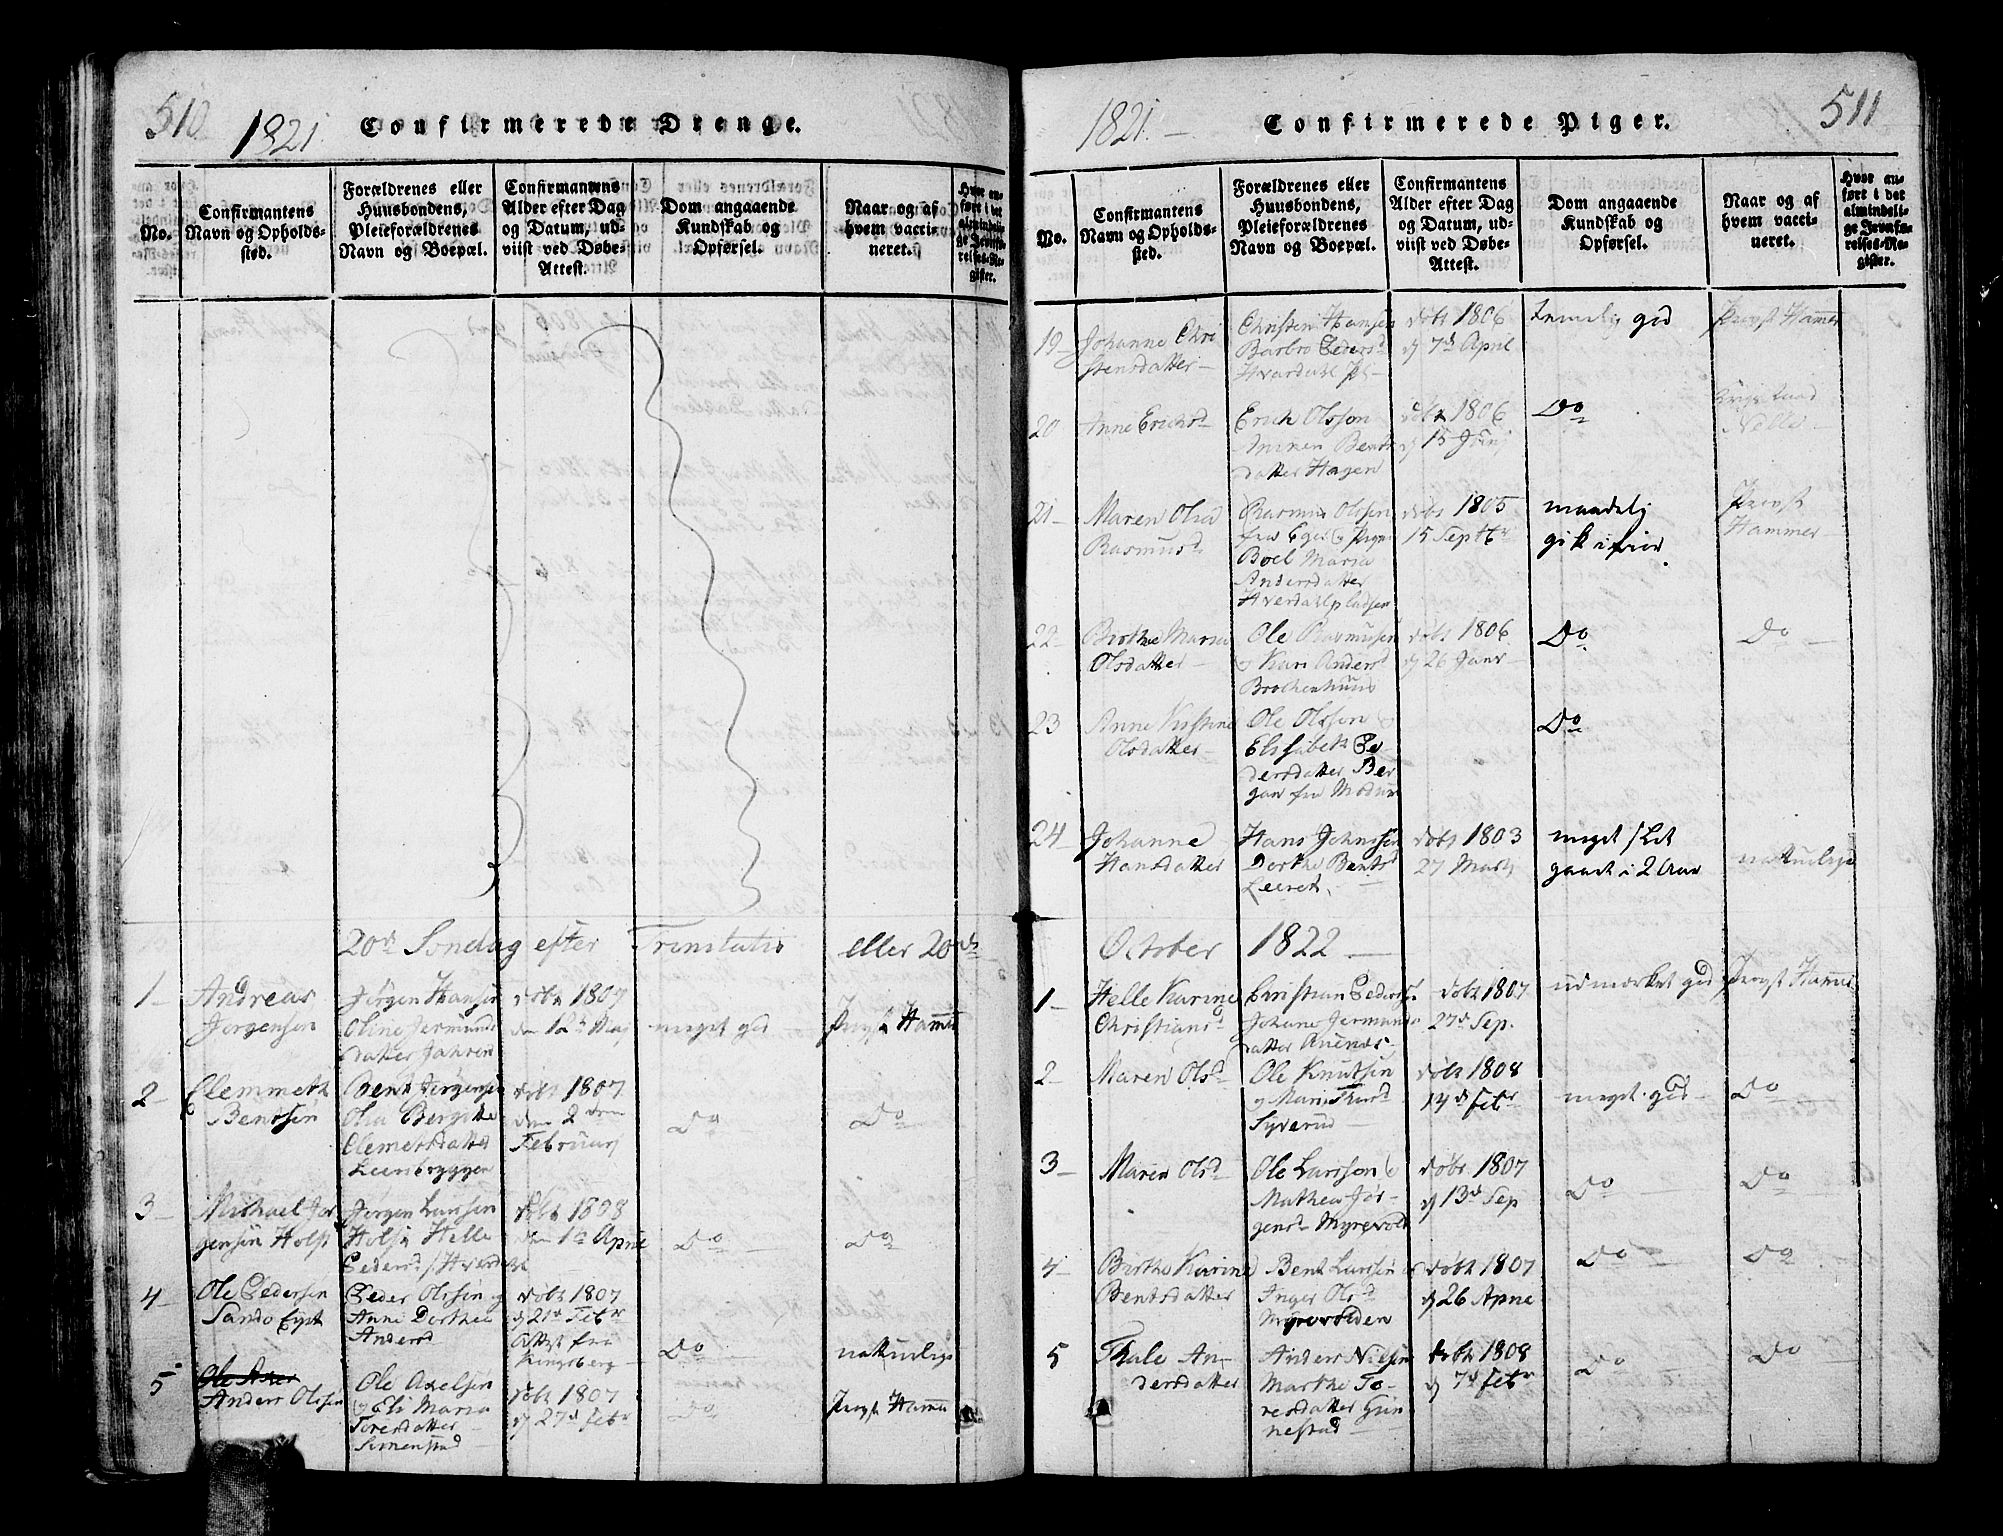 510
1821
Confirmerede Drenge.
No.
Confirmantens
Navn og Opholds-
sted.
Forældrenes eller
Huusbondens,
Pleieforældrenes
Navn og Boepæl.
Confirmantens
Alder efter Dag
og Datum, ud-
viist ved Døbe-
Attest.
Dom angaaende
Kundskab og
Opførsel.
Naar og af
hvem vacci-
neret.
Hvor an-
ført i det
almindeli-
ge Jevnfø-
relses-Re-
gister.
20de Søndag efter Trinitatis eller 20de
1
Andreas
Jørgensen
Jørgen Hansen
Oline Jermunds
datter Jahren
døbt 1807
den 12te Maj
meget god
Provst Hammer
2
Clemmeth
Bentsen
Bent Jørgensen
Olia Bergitte
Clemetsdatter
Leersbryggen
døbt 1807
den 2den
Februarj
Do
Do
3
Michael Jør
gensen Holst
Jørgen Larssen
Holst Helle
Pedersd
døbt 1808
den 1te April
Do
Do
4
Ole Pedersen
Sando
Peder Olssen og
Anne Dorthea
Andersd
døbt 1807
d 21de Febr
Attest fra
Kongsberg
Do
naturlige
5
Anders Olssen
Ole Axelsen
og Eli Maria
Toresdatter
Simenstad
døbt 1807
d 27de Febr
Do
Provst Hammer
1821.
Confirmerede Piger.
511
No.
Confirmantens
Navn og Opholds-
sted.
Forældrenes eller
Huusbondens,
Pleieforældrenes
Navn og Boepæl.
Confirmantens
Alder efter Dag
og Datum, ud-
viist ved Døbe-
Attest.
Dom angaaende
Kundskab og
Opførsel.
Naar og af
hvem vacci-
neret.
Hvor an-
ført i det
almindeli-
ge Jevnfø-
relses-Re-
gister.
19
Johanne Chri
stensdatter
Christen Hansen
Barbro Pedersd
Hverdahl
døbt 1806
d 7de April
temelig god
Provst Hammer
20
Anne Erichsd
Erich Olsson
Bents
datter Hagen
døbt 1806
d 15 Junj
Do
21
Maren Olea
Rasmusd
Rasmus Olssen
fra Eger
Boel Maria
Andersdatter
Hverdahlpladsen
døbt 1805
15 Septbr
maadelig
gik ifior
Provst
Hammer
22
Birthe Maria
Olsdatter
Ole Rasmussen
og Kari Andersd
Brochenhuus
døbt 1806
d 26 Janr
Do
Do
23
Anne Kirstine
Olsdatter
Ole Olsson
Elisabeth Pe-
dersdatter Ber
gan fra Modum
Do
24
Johanne
Hansdatter
Hans Johnssen
Dorthe Bentsd
Leeret
døbt 1803
27 Marts
meget slet
gaaet i 2 Aar
naturlige
October 1822
1
Helle Karine
Christiansd
Christian Peders
Johane Jermunds
datter
døbt 1807
27de Sep.
udmærket god
Provst Hammer
2
Maren Olsd
Ole Knutsen
og Mari
Syverud
døbt 1808
14de Febr
meget god
Do
3
Maren Olsd
Ole Larsson
Mathea Jør-
gensd Myrevold
døbt 1807
d 13de Sep
Do
Do
4
Birthe Karine
Bentsdatter
Bent Larssen
Inger Olsd
Myrevolden
døbt 1807
d 26 April
Do
Do
5
Thale An-
dersdatter
Anders Nilsen
Marthe To-
resdatter Gun
nestad
døbt 1808
d 7de Febr
Do
Do